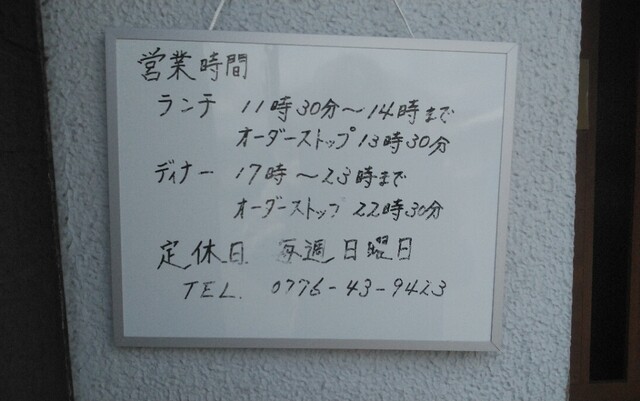 営業時間
ランチ 11時30分〜14時まで
オーダーストップ 13時30分
ディナー 17時〜23時まで
オーダーストップ 22時30分
定休日 毎週日曜日
TEL. 0776-43-9423